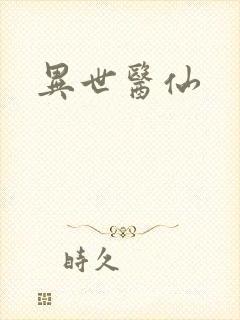 異世醫仙
時久